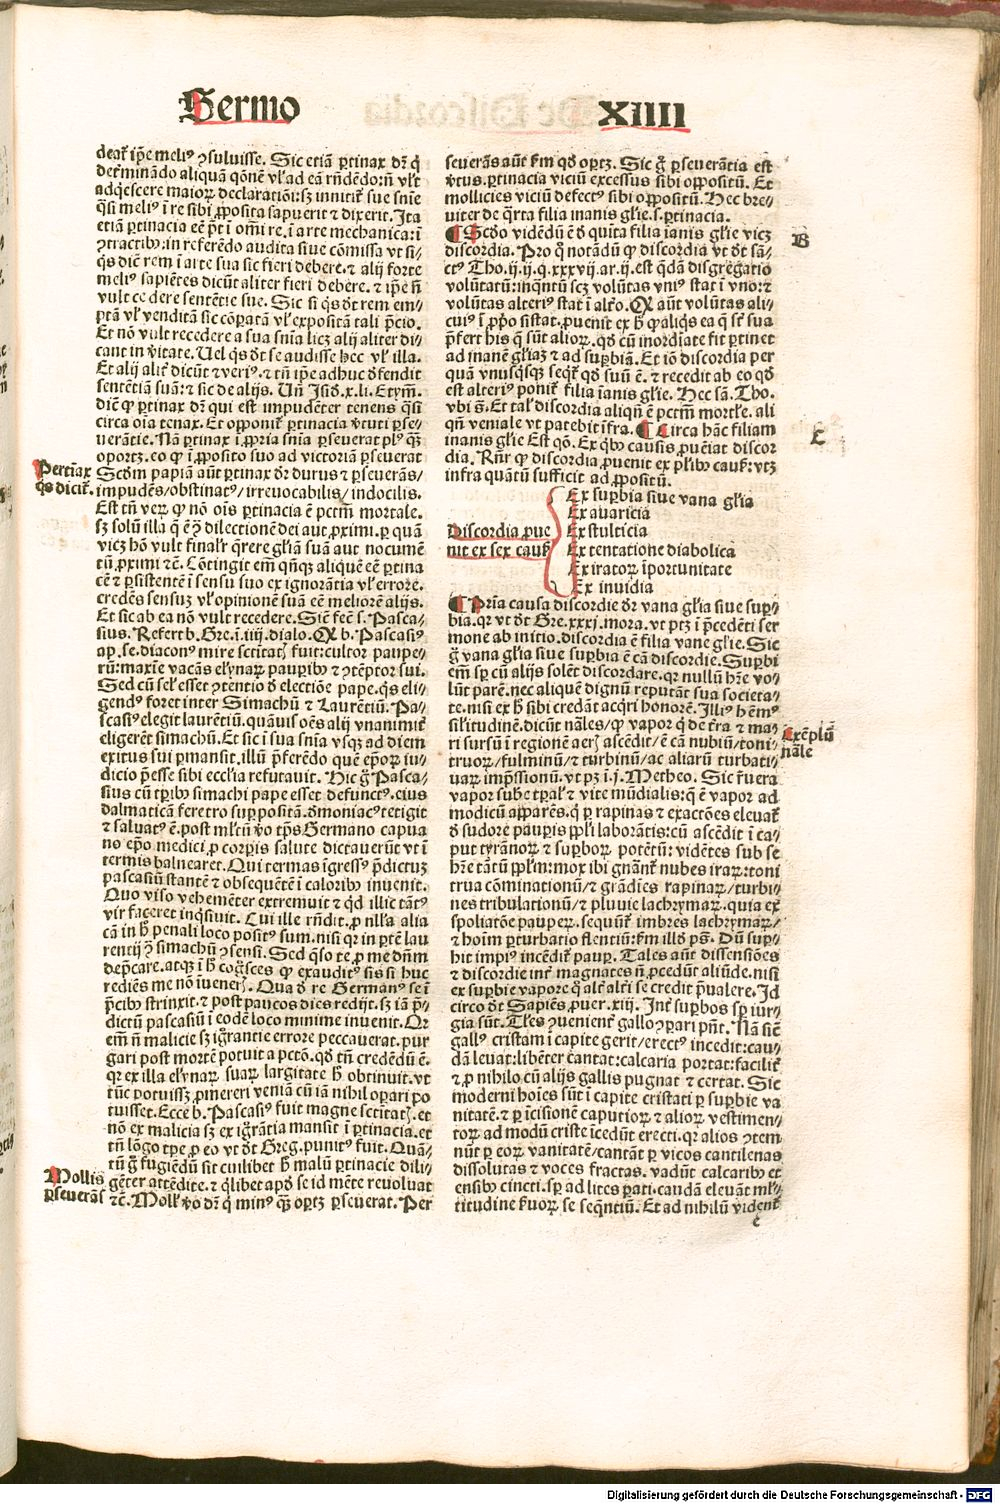 Sermo XIIII
deat̄ ip̄e meliꝰ ꝯsuluisse. Sic etiā ꝑtinax dr̄ q̇
determinādo aliquā qōnē vl̓ ad eā rn̄dēdo: nō vl̓t
adq̇escere maioꝝ declarationi: sꝫ innitit̄ sue sn̄ie
q̄si meliꝰ ī re sibi ꝓposita sapuerit ⁊ dixerit. Ita
etiā ꝑtinacia eē pōt ī om̄i re, ī arte mechanica: ī
ꝯtractibꝰ: in referēdo audita siue cōmissa vt si-
q̇s diē rem ī arte sua sic fieri debere. ⁊ alij forte
meliꝰ sapiētes dicūt aliter fieri debere. ⁊ ip̄e nō
vult cedere sentētie sue. Sic si q̇s dt̄ rem em-
ptā vl̓ venditā sic cōꝑatā vl̓ expositā tali p̄cio.
Et nō vult recedere a sua sn̄ia licꝫ alij aliter di-
cant in v̓itate. Uel q̇s dt̄ se audisse hec vl̓ illa.
Et alij alit̄ dicūt ⁊ veriꝰ. ⁊ tn̄ ip̄e adhuc defendit
sentētiā suā: ⁊ sic de alijs. Un̄ Isid. x. li. Etym.
diē ꝙ ꝑtinax dr̄ qui est impudēter tenens q̄si
circa oīa tenax. Et opponit̄ ꝑtinacia v̓tuti ꝑse-
uerātie. Nā ꝑtinax ī ꝓpria sn̄ia ꝑseuerat plꝰ q̄ꝫ
oportꝫ. eo ꝙ ī ꝓposito suo ad victoriā ꝑseuerat
Pertīax
q̇s dicit̄.
Scd̄m papiā aūt ꝑtinax dr̄ durus ⁊ ꝑseuerās,
impudēs/obstinatꝰ/irreuocabilis/indocilis.
Est tn̄ verū ꝙ nō oīs ꝑtinacia ē pctm̄ mortale.
sꝫ solū illa q̄ ē ꝯ dilectionē dei aut ꝓximi. ꝑ quā
vicꝫ hō vult finalr̄ q̄rere gl̓iā suā aut nocumē
tū ꝓximi ⁊c̄. Cōtingit em̄ qn̄qꝫ aliquē eē ꝑtina
cē ⁊ ꝑsistentē ī sensu suo ex ignorātia vl̓ errore.
credēs sensuꝫ vl̓ opinionē suā eē meliorē alijs.
Et sic ab ea nō vult recedere. Sic̄ fecē s. Pasca-
sius. Refert b. Gre. ī. iiij. dialo. Qꝙ b. Pascasiꝰ
ap. se. diaconꝰ mire sctitatꝭ fuit: cultor pauꝑe-
rū: maxie vacās elynaꝝ pauꝑibꝰ ⁊ ꝯtēptor sui.
Sed cū sel̓ esset ꝯtentio ō electiōe pape. q̇s eli-
gendꝰ foret inter Simachū ⁊ Laurētiū. Pa-
scasiꝰ elegit laurētiū. quāuis oēs alij vnanimit̄
eligerēt simachū. Et sic ī sua sn̄ia vsqꝫ ad diem
exitus sui ꝑmansit. illū p̄ferēdo quē ep̄oꝝ iu-
dicio p̄esse sibi ecclia refutauit. Hic ḡ Pasca-
sius cū tꝑibꝰ simachi pape esset defunctꝰ. eius
dalmaticā feretro suꝑpositā. demoniacꝰ tetigit
⁊ saluatꝰ ē. post ml̓tū v̓o tp̄s Germano capua
no ep̄o medici ꝓ corꝑis salute dictauerūt vt ī
termis balnearet. Qui termas īgressꝰ p̄dictuꝫ
pascasiū stantē ⁊ obsequētē ī caloribꝰ inuenit.
Quo viso vehemēter extremuit ⁊ qd̄ illic tātꝰ
vir faceret inq̇siuit. Cui ille rn̄dit. ꝓ nll̓a alia
cā in h̄ penali loco positꝰ sum. nisi qr̄ in ꝑtē lau
rentij ꝯ simachū ꝯsensi. Sed q̄so te ꝓ me dn̄m
dep̄care. atqꝫ ī h̄ cog̓sces ꝙ exauditꝰ sis si huc
rediēs me nō īueneꝝ. Qua ō re Germanꝰ se ī
p̄cibꝰ strinxit. ⁊ post paucos dies redijt. sꝫ iā p̄-
dictū pascasiū ī eodē loco minime inuenit. Qr̄
em̄ nō malicie sꝫ ig̓rantie errore peccauerat. pur
gari post mortē potuit a pctō. qd̄ tn̄ credēdū ē.
qr̄ ex illa elynaꝝ suaꝝ largitate h̄ obtinuit. vt
tūc potuissꝫ ꝓmereri veniā cū iā nihil oꝑari po
tuisset. Ecce b. Pascasiꝰ fuit magne sctitatꝭ. et
nō ex malicia sꝫ ex ig̓rātia mansit ī ꝑtinacia. et
tn̄ lōgo tp̄e ꝓ eo vt dt̄ Greg. punitꝰ fuit. Quā-
tū ḡ fugiēdū sit cuilibet h̄ malū ꝑtinacie dili-
Mollis
ꝑseuerās
gēter attēdite. ⁊ q̇libet apd̄ se id mēte reuoluat
⁊c̄. Moll̓ v̓o dr̄ q̇ minꝰ q̄ꝫ oꝑtꝫ ꝑseuerat. Per
seuerās aūt ẜm qd̄ oꝑtꝫ. Sic ḡ ꝑseuerātia est
v̓tus. ꝑtinacia viciū excessus sibi oppositū. Et
mollicies viciū defectꝰ sibi oppositū. Hec bre-
uiter de q̄rta filia inanis gl̓ie. s. ꝑtinacia.
B
¶ Scd̄o vidēdū ē ō quīta filia īanis gl̓ie vicꝫ
discordia. Pro q̄ notādū ꝙ discordia vt dt̄ sā-
ctꝰ Tho. ij. ij. q. xxxvij. ar. ij. est q̄dā disgregatio
volūtatū: inq̄ntū scꝫ volūtas vniꝰ stat ī vno: ⁊
volūtas alteriꝰ stat ī alt̄o. Qꝙ aūt volūtas ali-
cuiꝰ ī ꝓp̄o sistat. ꝓuenit ex h̄ ꝙ aliq̇s ea q̄ sūt sua
p̄fert his q̄ sūt alioꝝ. qd̄ cū inordīate fit ꝑtinet
ad inanē gl̓iaꝫ ⁊ ad suꝑbiā. Et iō discordia per
quā vnusq̇sqꝫ seqt̄ qd̄ suū ē. ⁊ recedit ab eo qd̄
est alteriꝰ ponit̄ filia īanis gl̓ie. Hec sā. Tho.
vbi s̄. Et tal̓ discordia aliqn̄ ē pctm̄ mortl̓e. ali
qn̄ veniale vt patebit īfra. ¶ Circa hāc filiam
C
inanis gl̓ie Est qō. Ex q̇bꝰ causis ꝓueniat discor
dia. Rn̄r ꝙ discordia ꝓuenit ex pl̓ibꝰ cauẜ: vtꝫ
infra quātū sufficit ad ꝓpositū.
Discordia ꝓue
nit ex sex cauẜ
Ex suꝑbia siue vana gl̓ia
Ex auaricia
Ex stulticia
Ex tentatione diabolica
Ex iratoꝝ īportunitate
Ex inuidia
¶ Prīa causa discordie dr̄ vana gl̓ia siue suꝑ-
bia. qr̄ vt dt̄ Gre. xxxj. mora. vt ptꝫ ī p̄cedēti ser
mone ab initio. discordia ē filia vane gl̓ie. Sic
ḡ vana gl̓ia siue suꝑbia ē cā discordie. Suꝑbi
em̄ sꝑ cū alijs solēt discordare. qr̄ nullū hr̄e vo-
lūt parē. nec aliquē dignū reputāt sua societa-
te. nisi ex h̄ sibi credāt acq̇ri honorē. Illiꝰ hēmꝰ
silitudinē. dicūt nāles/ꝙ vapor q̇ de t̄ra ⁊ ma-
Exēplū
nāle
ri sursū ī regionē aerꝭ ascēdit/ē cā nubiū/toni-
truoꝝ/fulminū/⁊ turbinū/ac aliarū turbati-
uaꝝ imp̄ssionū. vt pꝫ i. j. Metheo. Sic r̓uera
vapor sub̄e tꝑal̓ ⁊ vite mūdialis: q̇ ē vapor ad
modicū apparēs. q̇ ꝑ rapinas ⁊ exactōes eleuat̄
ō sudore pauꝑis ppl̓i laborātis: cū ascēdit ī ca-
put tyrānoꝝ ⁊ suꝑboꝝ potētū: vidētes sub se
hr̄e tātū ppl̓m: mox ibi gn̄ant̄ nubes iraꝝ: toni
trua cōminationū/⁊ grādies rapinaꝝ/turbi-
nes tribulationū/⁊ pluuie lachrymaꝝ. quia ex
spoliatōe pauꝑeꝝ. sequūt̄ imbres lachrymaꝝ/
⁊ hoīm ꝑturbatio flentiū: ẜm illd̄ ps̄. Dū suꝑ-
bit impiꝰ incēdit̄ pauꝑ. Tales aūt dissensiōes
⁊ discordie int̄ magnates nō ꝓcedūt aliūde. nisi
ex suꝑbie vapore q̇ alt̄ alt̄i se credit p̄ualere. Id
circo dt̄ Sapiēs. ꝓuer. xiij. Int̄ suꝑbos sꝑ iur-
gia sūt. Tl̓es ꝯuenient̄ gallo ꝯꝑari pn̄t. Nā sic̄
gallꝰ cristam ī capite gerit/erectꝰ incedit: cau-
dā leuat: libēter cantat: calcaria portat: facilit̄
⁊ ꝓ nihilo cū alijs gallis pugnat ⁊ certat. Sic
moderni hoīes sūt ī capite cristati ꝑ suꝑbie va
nitatē. ⁊ ꝑ īcisionē caputioꝝ ⁊ alioꝝ vestimen-
toꝝ ad modū criste īcedūt erecti. qr̄ alios ꝯtem-
nūt ꝑ eoꝝ vanitatē/cantāt ꝑ vicos cantilenas
dissolutas ⁊ voces fractas. vadūt calcaribꝰ et
ensibꝰ cincti. sꝑ ad lites ꝑati. caudā eleuāt ml̓-
titudine seruoꝝ se seq̄ntiū. Et ad nihilū vident̄
c
Digitalisierung gefördert durch die Deutsche Forschungsgemeinschaft - DFG